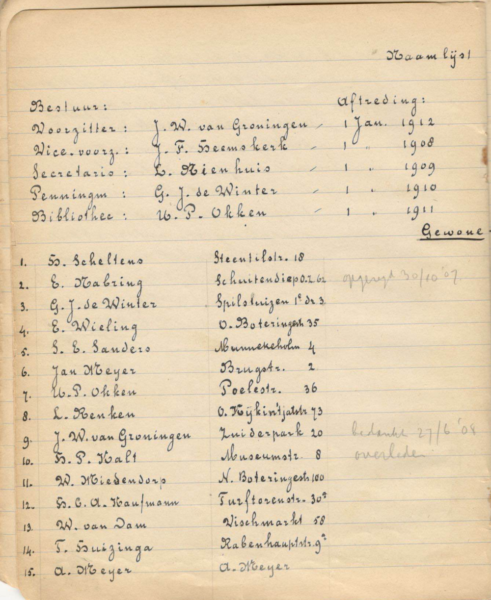 Naamlijst
Bestuur: Aftreding:
Voorzitter: J. W. van Groningen - 1 Jan. 1912
Vice.voorz.: J. F. Heemskerk - 1 " 1908
Secretaris: L. Nienhuis - 1 " 1909
Penningm: G. J. de Winter - 1 " 1910
Bibliothec: U. P. Okken - 1 " 1911
Gewone-
1. H. Scheltens Steentilstr. 18
2. E. Nabring Schuitendiep O.Z. 62 opgezegd 30/10 '07
3. G. J. de Winter Spilsluizen 1e dr 3
4. E. Wieling O. Boteringestr 35
5. S. E. Sanders Munnekeholm 4
6. Jan Meyer Brugstr. 2
7. U. P. Okken Poelestr. 36
8. L. Renken O. Kijkin'tjatstr 73
9. J. W. van Groningen Zuiderpark 20 bedankt 27/6 '08
10. H. P. Kalt Museumstr. 8 overleden
11. W. Miedendorp N. Boteringestr 100
12. H. C. A. Kaufmann Turftorenstr. 30a
13. W. van Dam Vischmarkt 58
14. T. Huizinga Rabenhauptstr. 9a
15. A. Meyer A. Meyer